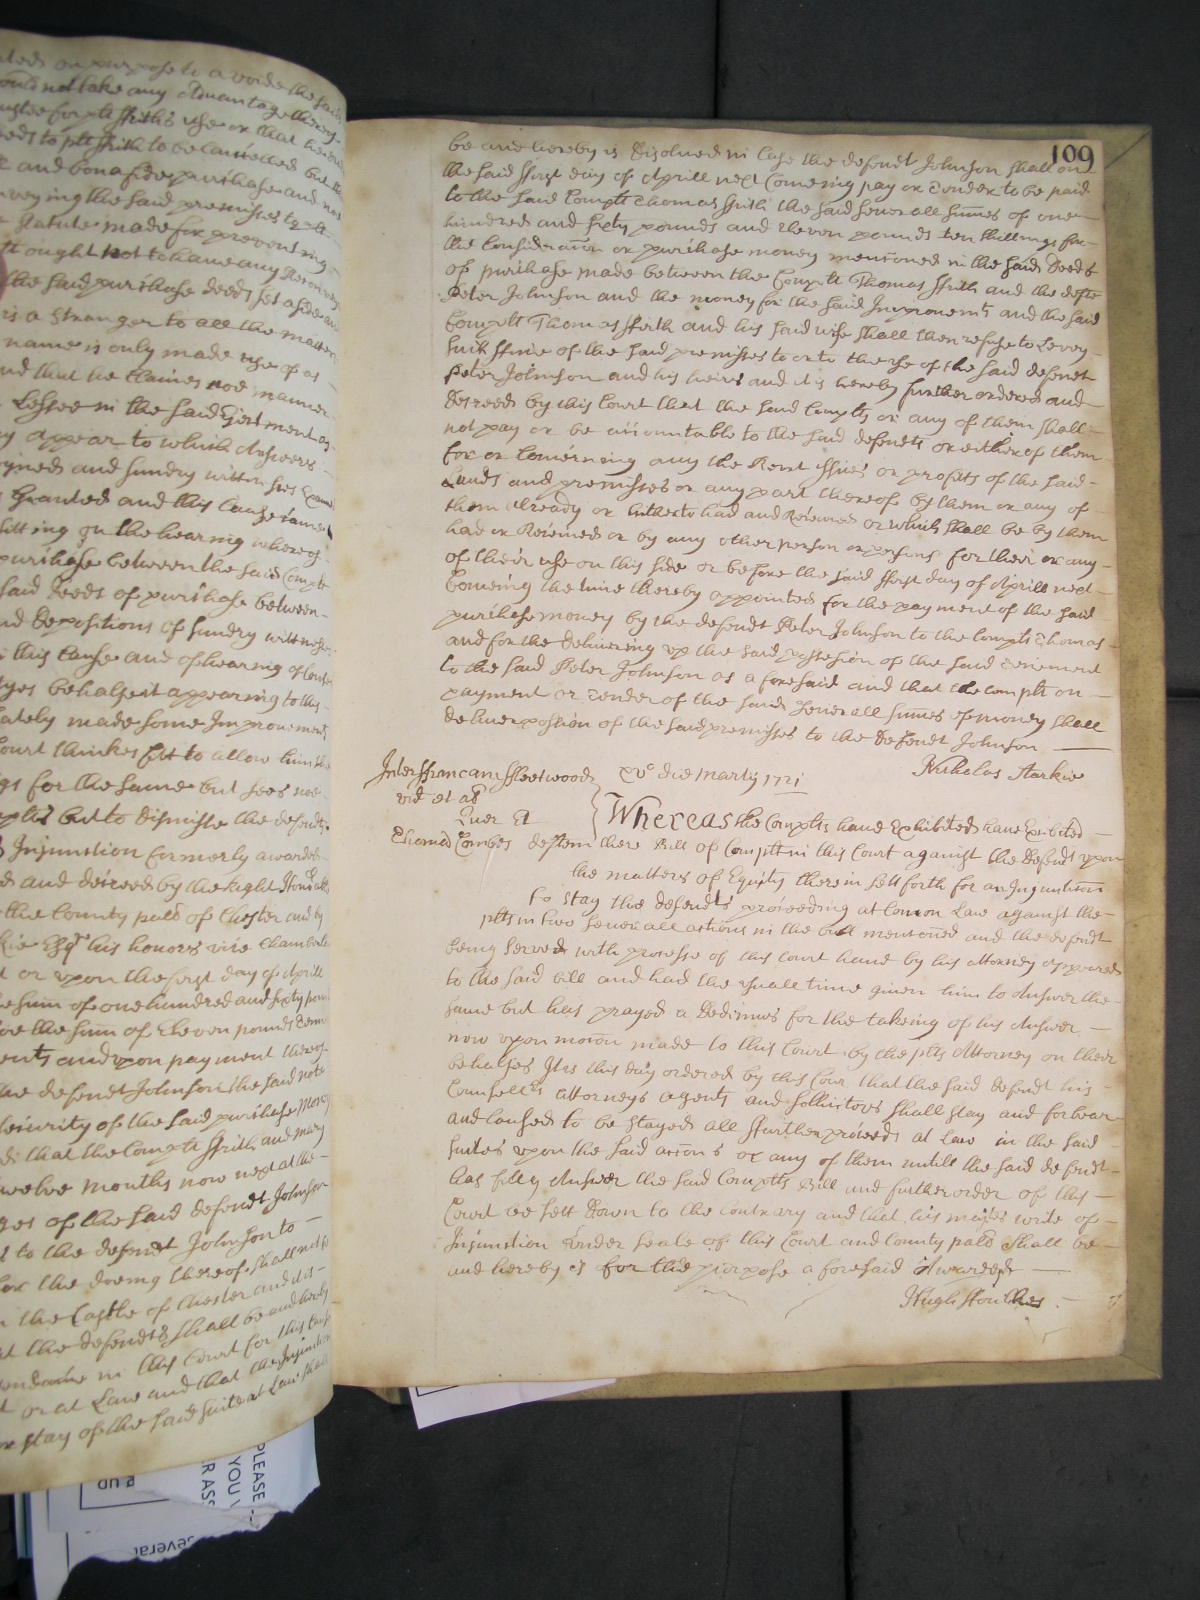 ated on purpose to avoide the said
ould not take any Advantage thereof
ustee for ptt Ffriths use or that he
eeds to ptt Ffrith to be cancelled but the
e and bonafide purchase and not
nveying the said premisses to ptt
Statute made for prevent ing
tt ought not to have any Recovery
the said purchase deeds set aside and
is a Stranger to all the matters
name is only made use of as
nd that he claimes noe manner
Lessee in the said Ejectment as
y appear to which Answers
yned and sundry wittnesses Exami
s Granted and this Cause came
sitting on the hearing whereof
purchase between the said Complt
said deeds of purchase between
nd depositions of sundry wittnesses
this Cause and of hearing of Coun
tyes behalfe it appearing to this
lately made some Improvements
Court thinkes fitt to allow him the
gs for the same but sees noe
mplts but to dismisse the defendts
Injunction formerly awarded
d and decreed by the Right Honoble
the County palð of Chester and by
kie Esqr his honors vice Chamberla
t or upon the first day of Aprill
he sum of one hundred and sixty poun
oe the sum of Eleven pounds tenn
ents and upon payment thereof
he defendt Johnson the said note
Security of the said purchase Money
d that the Complts Ffrith and Mary
twelve months now next at the
ges of the said defendt Johnson
d to the defendt Johnson to
for the doeing thereof shall not
n the Castle of Chester and dis
at the defendts shall be and hereby
endance in this Court for this Cause
t or at Law and that the Injunction
or stay of the said suite at Law shall
109
be and hereby is Disolved in Case the defendt Johnson shall on
the said ffirst day of Aprill next Comeing pay or tender to be paid
to the said Complt Thomas Ffrith the said severall sumes of one
hundred and sixty pounds and Eleven pounds ten shillings for
the Consideracon or purchase money mentioned in the said Deeds
of purchase made between the Complt Thomas Ffrith and the defte
Peter Johnson and the money for the said Improvemts and the said
Complt Thomas Ffrith and his said wife shall then refuse to Levey
such ffine of the said premisses to or to the use of the said defendt
Peter Johnson and his heires and it is hereby further ordered and
Decreed by this Court that the said Complts or any of them shall
not pay or be accountable to the said defendts or either of them
for or Concerning any the Rent Issues or profits of the said
Lands and premisses or any part thereof by them or any of
them already or hitherto had and Received or which shall be by them
had or Received or by any other person or persons for their or any
of their use on this side or before the said ffirst day of Aprill next
Comeing the time thereby appointed for the payment of the said
purchase money by the defendt Peter Johnson to the Complt Thomas
and for the Delivering up the said possesion of the said tenement
to the said Peter Johnson as aforesaid and that the Complt on
payment or tender of the said severall sumes of money shall
deliver possion of the said premisses to the Defendt Johnson
Nicholas Starkie
Inter Ffrancam Ffleetwood xvo die Martij 1721
vid et at
Quer Et Whereas the Complts have Exhibited have Exibited
Thomã Combes deftem there Bill of Complt in this Court against the Defendt upon
the matters of Equity therein sett forth for an Injunction
to stay the defendts proceeding at Comon Law against the
ptts in two severall actions in the bill mentioned and the defendt
being served with processe of this Court have by his Attorney Appeared
to the said bill and had the usuall time given him to Answer the
same but has prayed a Dedimus for the takeing of his Answer
now upon motion made to this Court by the ptts Attorney on their
behalfes Itis this day ordered by this Cour that the said defendt his
Counsellrs attorneys agents and sollicitors shall stay and forbear
and caused to be stayed all ffurther proceeds at Law in the said
suites upon the said accons or any of them untill the said defendt
has fully Answer the said Complts Bill and further order of this
Court be sett down to the contrary and that his majties write of
Injunction under seale of this Court and County palð shall be
and hereby is for the purpose aforesaid Awarded
Hugh Ffoulkes
PLEASE
YOU
R ASS
several